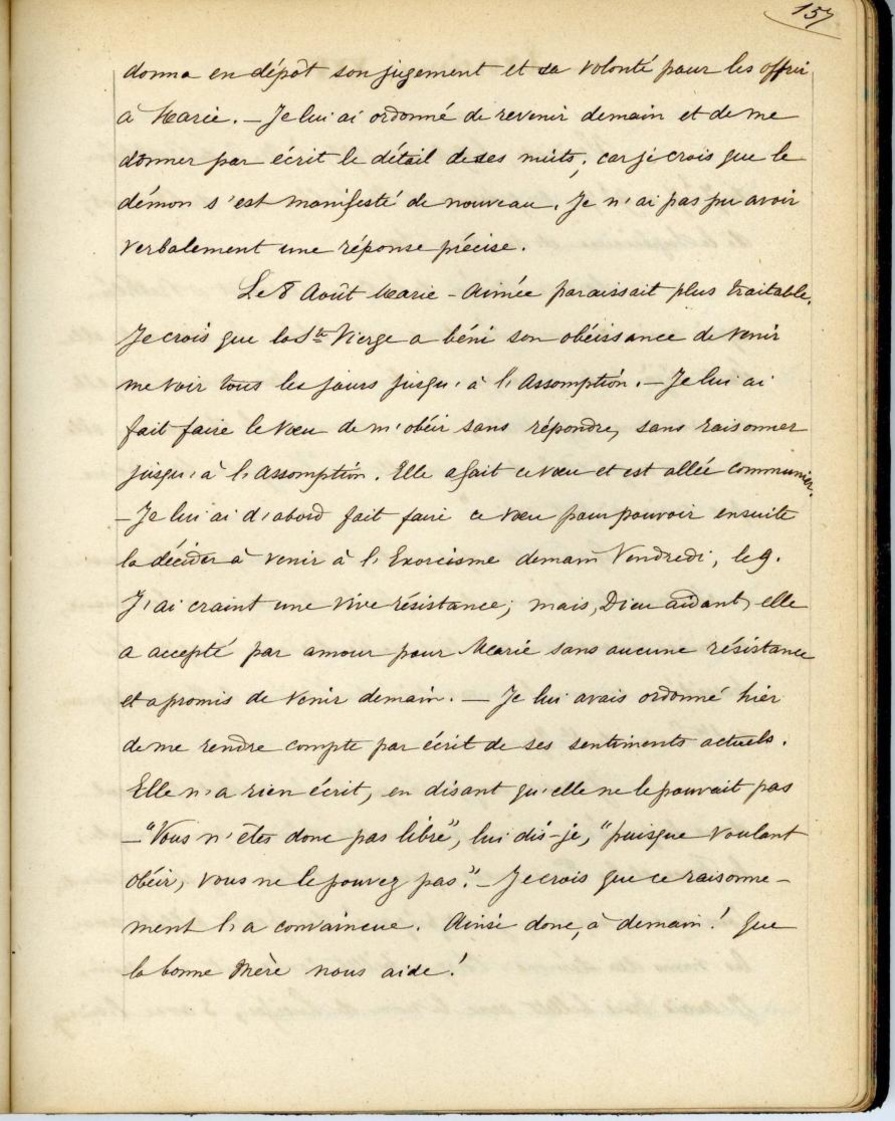 157
donna en dépôt son jugement et sa volonté pour les offrir
à Marie. — Je lui ai ordonné de revenir demain et de me
donner par écrit le détail de ses nuits; car je crois que le
démon s'est manifesté de nouveau. Je n'ai pas pu avoir
verbalement une réponse précise.
Le 8 Août Marie-Aimée paraissait plus traitable.
Je crois que la Ste Vierge a béni son obéissance de venir
me voir tous les jours jusqu'à l'Assomption. — Je lui ai
fait faire le vœu de m'obéir sans répondre, sans raisonner
jusqu'à l'Assomption. Elle a fait ce vœu et est allée communier.
— Je lui ai d'abord fait faire ce vœu pour pouvoir ensuite
la décider à venir à l'Exorcisme demain Vendredi, le 9.
J'ai craint une vive résistance; mais, Dieu aidant, elle
a accepté par amour pour Marie sans aucune résistance
et a promis de venir demain. — Je lui avais ordonné hier
de me rendre compte par écrit de ses sentiments actuels.
Elle n'a rien écrit, en disant qu'elle ne le pouvait pas
— "Vous n'êtes donc pas libre", lui dis-je, "puisque voulant
obéir, vous ne le pouvez pas." — Je crois que ce raisonne-
ment l'a convaincue. Ainsi donc, à demain! Que
la bonne Mère nous aide!